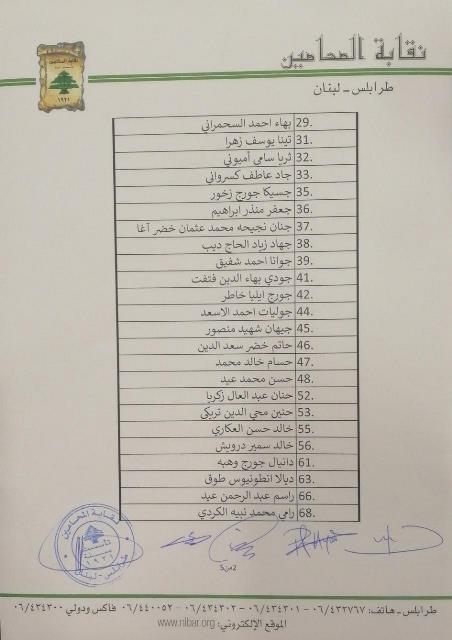 نقابة المحامين
طرابلس - لبنان
نقابة المحامين
١٩٢١
29. بهاء احمد السحمراني
31. تينا يوسف زهرا
32. ثريا سامي أميوني
33. جاد عاطف كسرواني
35. جسيكا جورج زخور
36. جعفر منذر ابراهيم
37. جنان نجيحه محمد عثمان خضر آغا
38. جهاد زياد الحاج ديب
39. جوانا احمد شفيق
41. جودي بهاء الدين فتفت
42. جورج ايليا خاطر
44. جوليات احمد الاسعد
45. جيهان شهيد منصور
46. حاتم خضر سعد الدين
47. حسام خالد محمد
48. حسن محمد عيد
52. حنان عبد العال زكريا
53. حنين محي الدين تريكي
55. خالد حسن العكاري
56. خالد سمير درويش
61. دانيال جورج وهبه
63. ديالا انطونيوس طوق
66. راسم عبد الرحمن عبد
68. رامي محمد نبيه الكردي
نقابة المحامين
١٩٢١
طرابلس - لبنان
طرابلس - هاتف: ٠٦/٤٣٢٧٦٧ - ٠٦/٤٣٤٣٠١ - ٠٦/٤٣٤٣٠٢ - ٠٦/٤٤٠٠٥٢ فاكس ودولي ٠٦/٤٣٤٣٠٠
الموقع الإلكتروني: www.nlbar.org